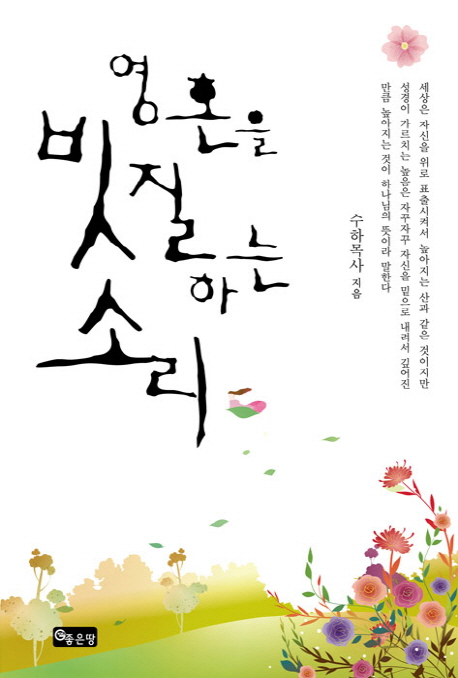 영혼을
빗질하는
소리
세상은 자신을 위로 표출시켜서 높아지는 산과 같은 것이지만
성경이 가르치는 높음은 자꾸자꾸 자신을 밑으로 내려서 깊어진
만큼 높아지는 것이 하나님의 뜻이라 말한다
수하목사 지음
좋은땅